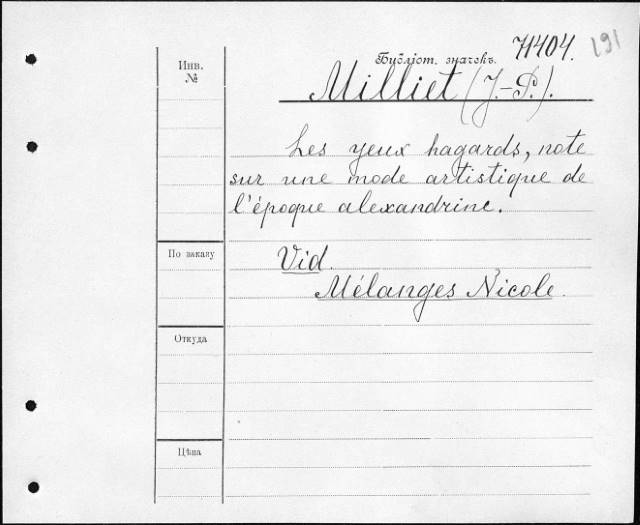 71404. 191
Инв.
№
Библіот. значекъ.
Milliet (J.-P.).
Les yeux hagards, note
sur une mode artistique de
l'époque alexandrine.
По заказу
Vid.
Mélanges Nicole.
Откуда
Цѣна